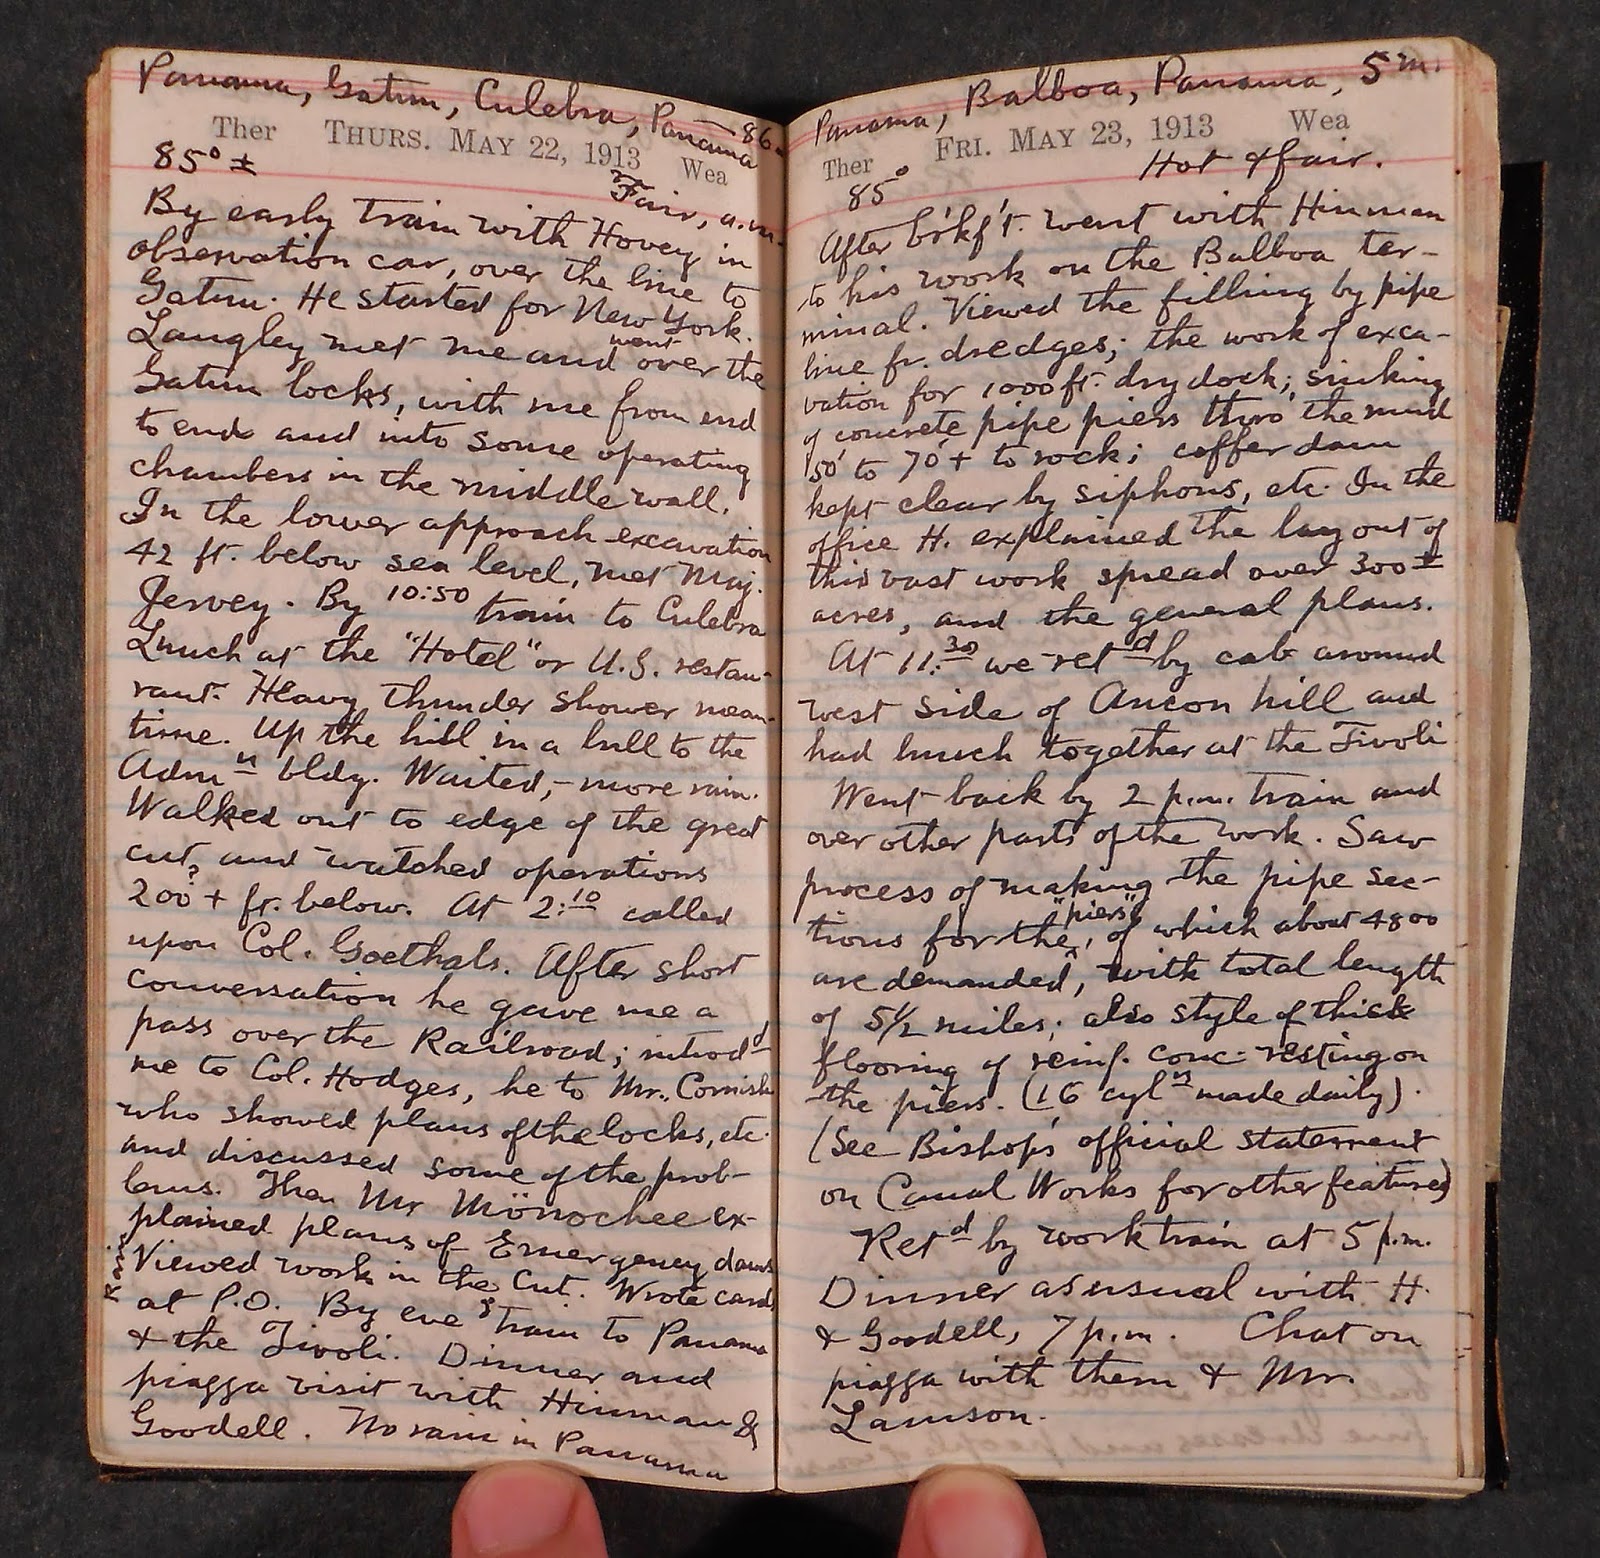 Panama, Gatun, Culebra, Panama 86
Ther THURS. MAY 22, 1913 Wea
85° ± Fair, a.m.
By early train with Hovey in
observation car, over the line to
Gatun. He started for New York.
Langley met me and went over the
Gatun locks, with me from end
to end and into some operating
chambers in the middle wall.
In the lower approach excavation
42 ft. below sea level, met Maj.
Jervey. By 10:50 train to Culebra
Lunch at the "Hotel" or U.S. restau-
rant. Heavy thunder shower mean-
time. Up the hill in a lull to the
Admn bldg. Waited, - more rain.
Walked out to edge of the great
cut, and watched operations
200?+ ft. below. At 2:10 called
upon Col. Goethals. After short
conversation he gave me a
pass over the Railroad; introd-d
me to Col. Hodges, he to Mr. Cornish
who showed plans of the locks, etc.
and discussed some of the prob-
lems. Then Mr Mönochee ex-
plained plans of Emergency dams
Rain Viewed work in the Cut. Wrote cards
at P.O. By eveg train to Panama
& the Tivoli. Dinner and
piazza visit with Hinman &
Goodell. No rain in Panama
Panama, Balboa, Panama, 5 m.
Ther FRI. MAY 23, 1913 Wea
85° Hot & fair.
After b'kf't. went with Hinman
to his work on the Balboa ter-
minal. Viewed the filling by pipe
line fr. dredges; the work of exca-
vation for 1000 ft. dry dock; sinking
of concrete pipe piers thro' the mud
50' to 70'+ to rock; coffer dam
kept clear by siphons, etc. In the
office H. explained the lay out of
this vast work spread over 300 ±
acres, and the general plans.
At 11:30 we ret d by cab around
west side of Ancon hill and
had lunch together at the Tivoli
Went back by 2 p.m. train and
over other parts of the work. Saw
process of making the pipe sec-
tions for the "piers", of which about 4800
are demanded, with total length
of 5½ miles; also style of thick
flooring of reinf. conc. resting on
the piers. (16 cyl rs made daily).
(See Bishop's official statement
on Canal Works for other features)
Ret d by work train at 5 p.m.
Dinner as usual with H.
& Goodell, 7 p.m. Chat on
piazza with them & Mr.
Lamson.